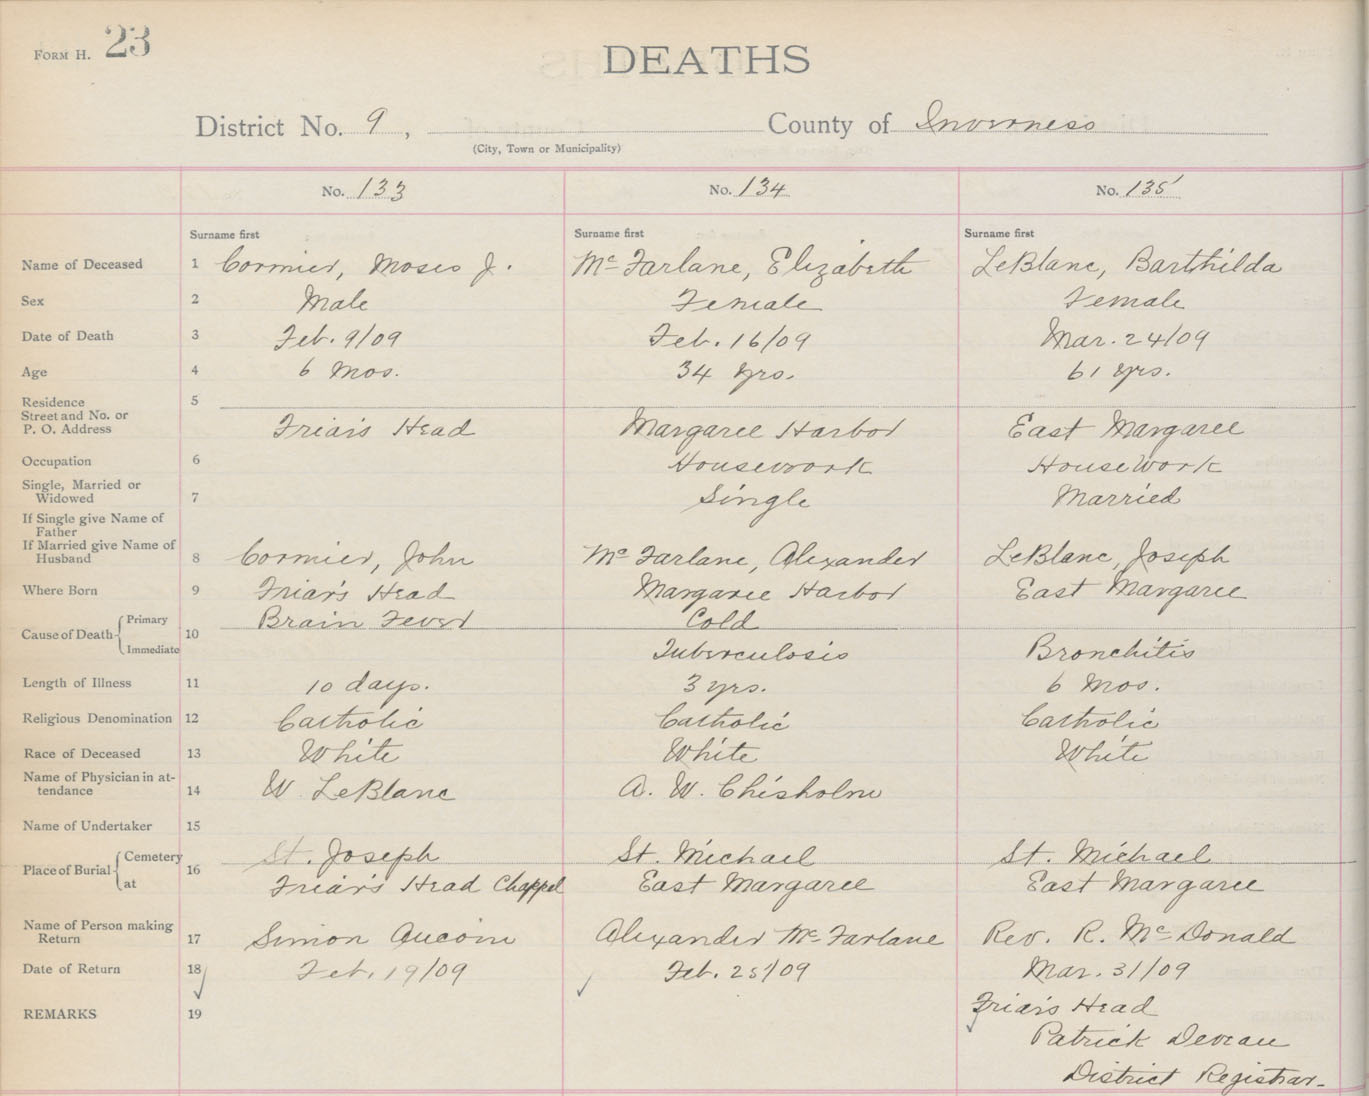 Form H. 23
DEATHS
District No. 9, County of Inverness
(City, Town or Municipality)
No. 133 No. 134 No. 135
Surname first Surname first Surname first
Name of Deceased 1 Cormier, Moses J. Mc Farlane, Elizabeth LeBlanc, Barthilda
Sex 2 Male Female Female
Date of Death 3 Feb. 9/09 Feb. 16/09 Mar. 24/09
Age 4 6 Mos. 34 yrs. 61 yrs.
Residence 5
Street and No. or
P. O. Address Friar's Head Margaree Harbor East Margaree
Occupation 6 Housework HouseWork
Single, Married or
Widowed 7 Single Married
If Single give Name of
Father
If Married give Name of
Husband 8 Cormier, John Mc Farlane, Alexander LeBlanc, Joseph
Where Born 9 Friar's Head Margaree Harbor East Margaree
Cause of Death Primary 10 Brain Fever Cold
Immediate Tuberculosis Bronchitis
Length of Illness 11 10 days. 3 yrs. 6 Mos.
Religious Denomination 12 Catholic Catholic Catholic
Race of Deceased 13 White White White
Name of Physician in at-
tendance 14 W. LeBlanc A. W. Chisholm
Name of Undertaker 15
Place of Burial Cemetery 16 St. Joseph St. Michael St. Michael
at Friar's Head Chappel East Margaree East Margaree
Name of Person making
Return 17 Simon Aucoin Alexander Mc Farlane Rev. R. Mc Donald
Date of Return 18 Feb. 19/09 Feb. 25/09 Mar. 31/09
REMARKS 19 Friar's Head
Patrick Deveau
District Registrar.